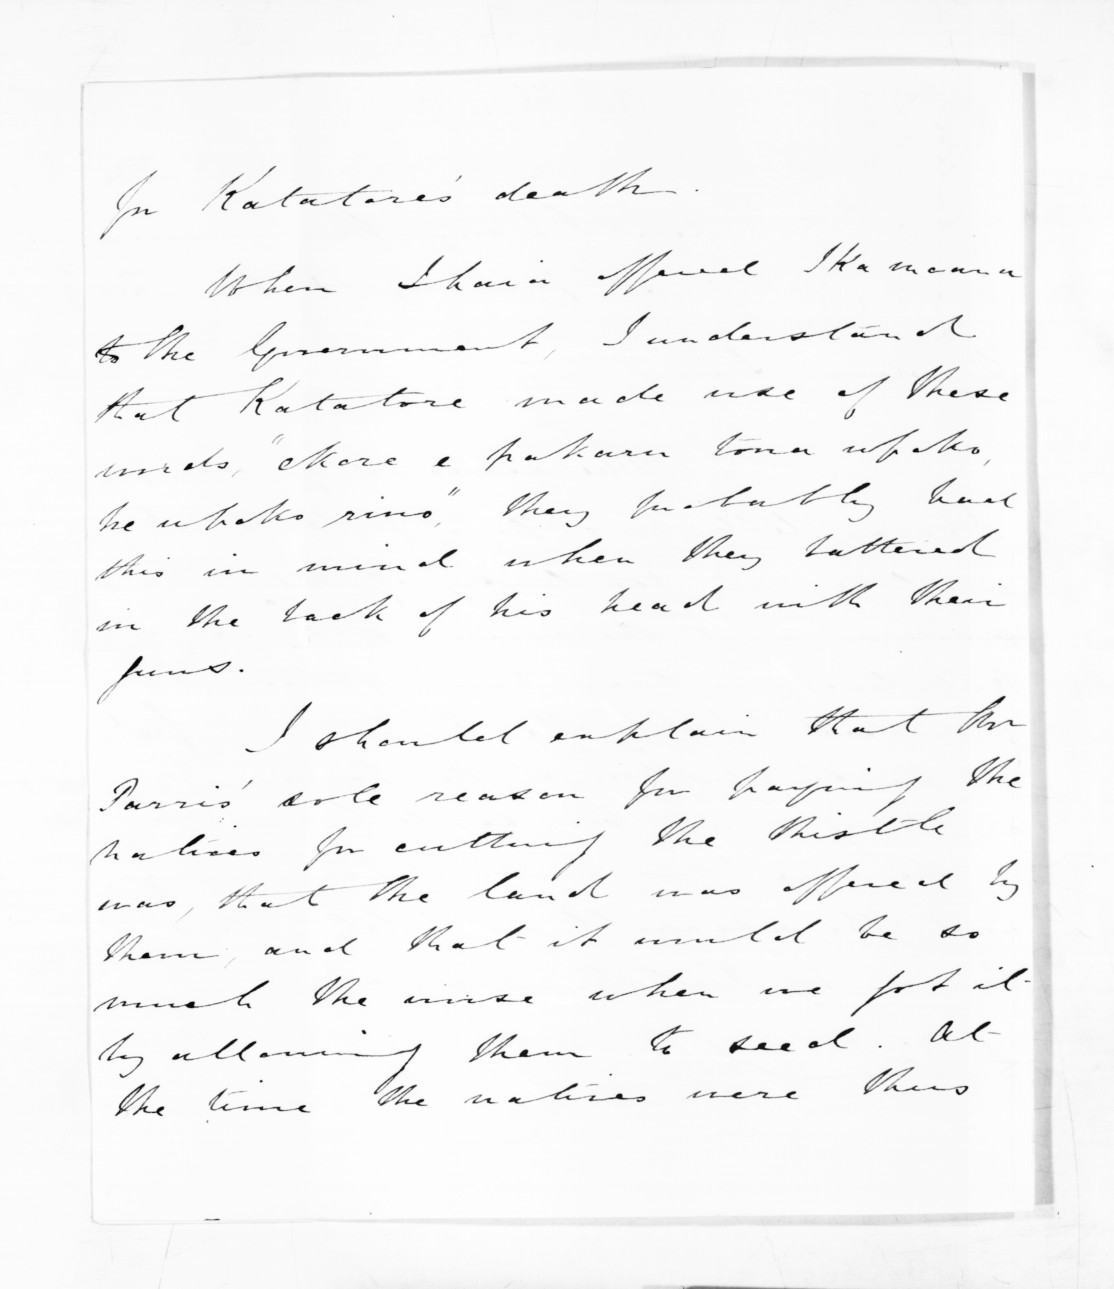 for Katatore's death.
When Ihaia offered Ikamoana
to the Government, I understand
that Katatore made use of these
words, "ekore e pakaru tona upoko,
he upoko rino", they probably had
this in mind when they battered
in the back of his head with their
guns.
I should explain that Mr
Parris' sole reason for paying the
natives for cutting the thistle
was, that the land was offered by
them, and that it would be so
much the worse when we got it
by allowing them to seed. At
the time the natives were thus